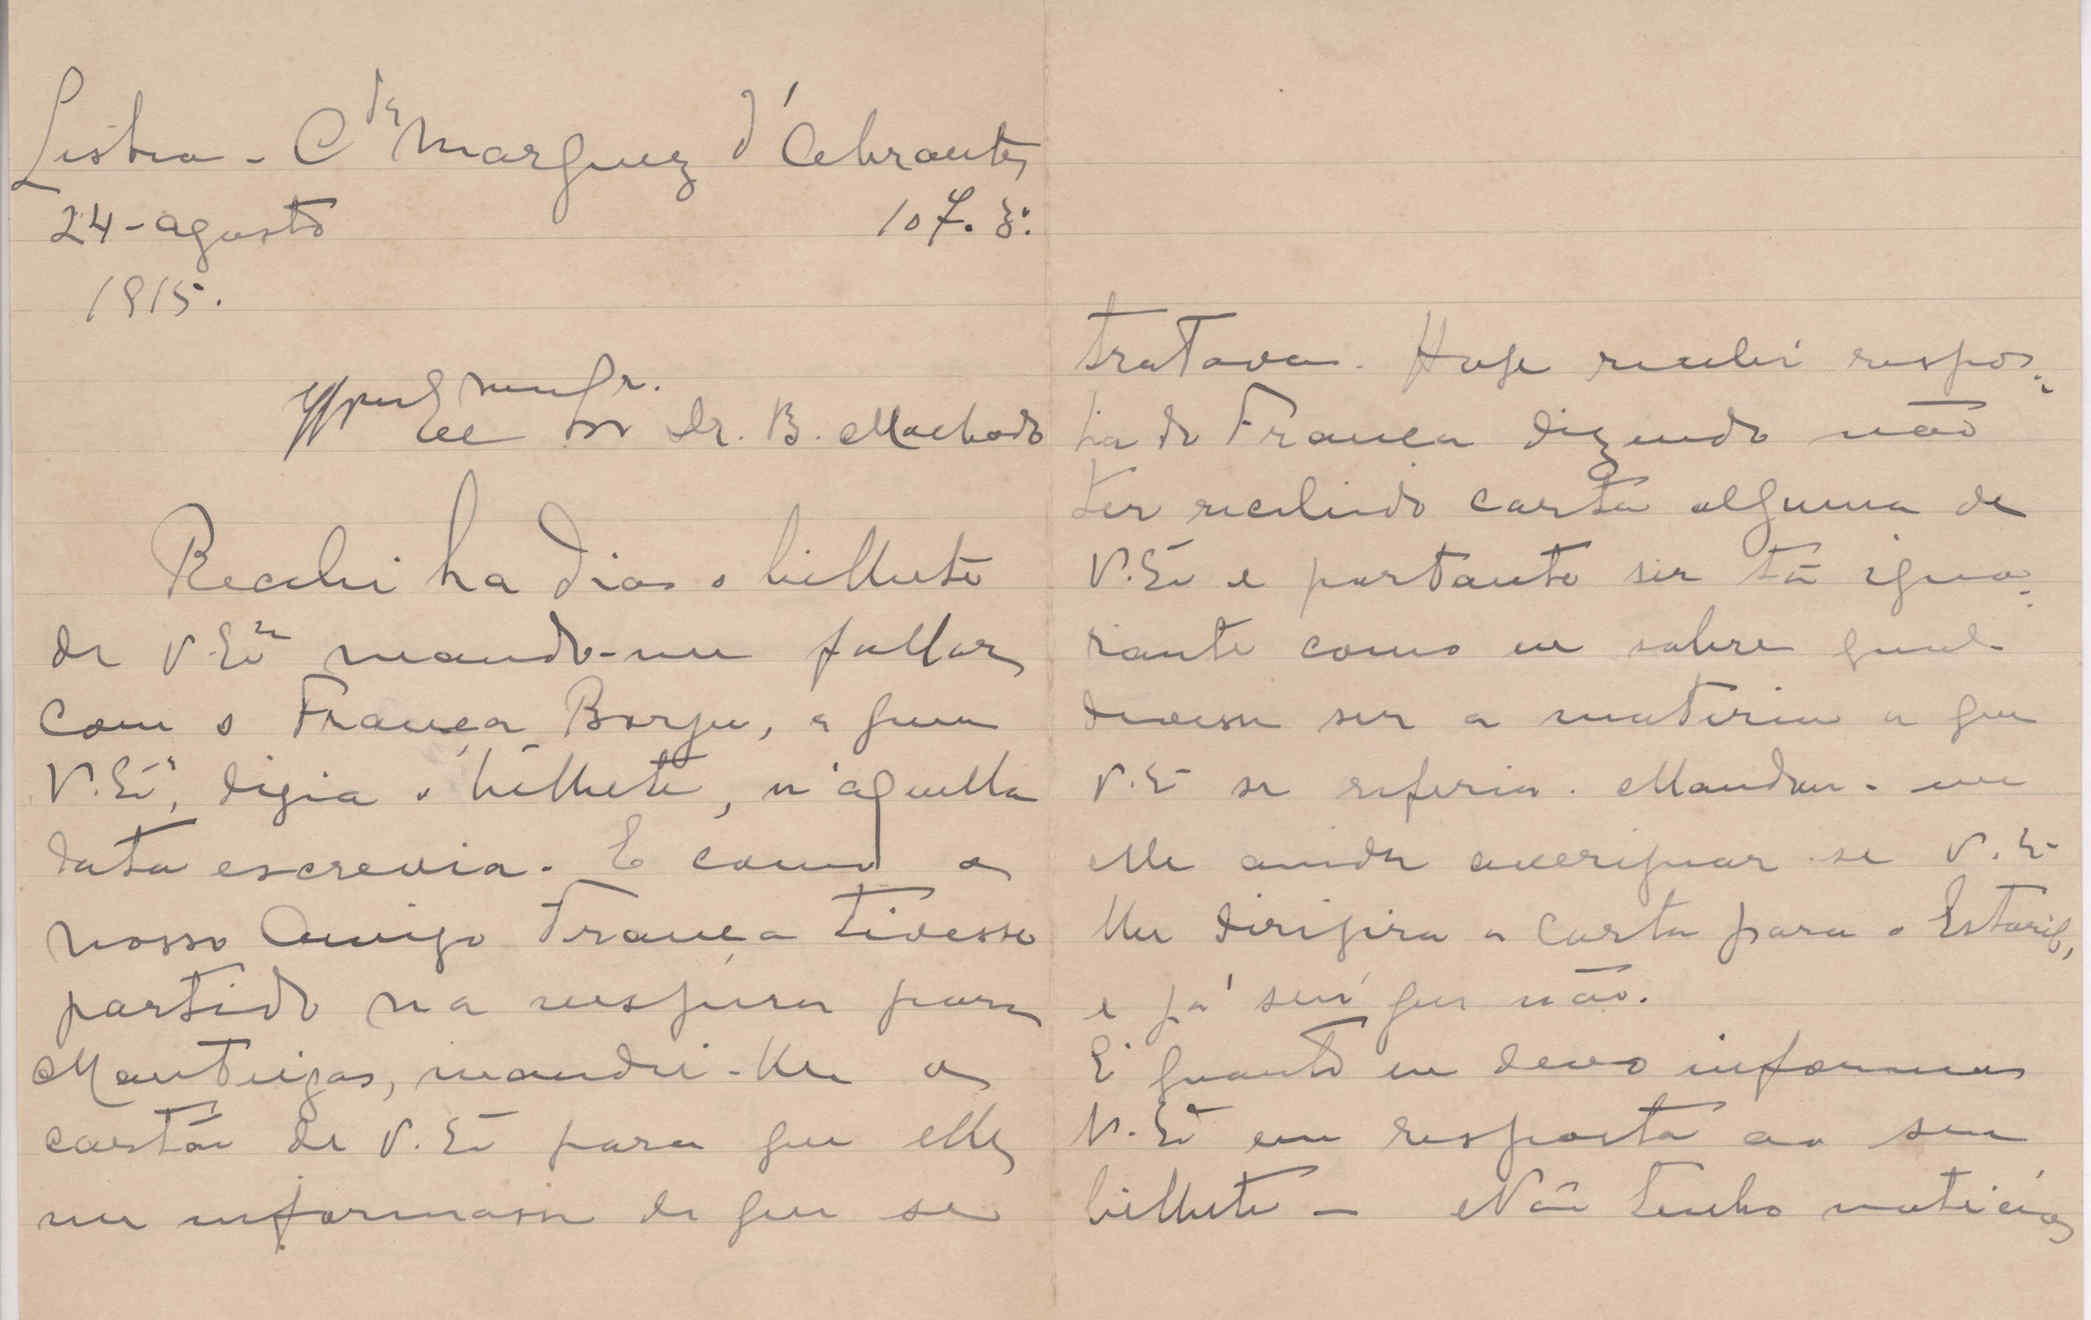 Lisboa - C.da Marquez d'Abrantes
24 - agosto 107. 3º
1915.
Sr. Dr. B. Machado
Recebi ha dias o bilhete
de V. Exª mando-me fallar
com o França Borges, a quem
V. Exª, dizia o bilhete, n'aquella
data escrevia. E como o
nosso Amigo França tivesse
partido na vespera para
Manteigas, mandei-lhe o
cartão de V. Exª para que elle
me informasse de que se
tratava. Hoje recebi respos-
ta do França dizendo não
ter recebido carta alguma de
V. Exª e portanto ser tão igno-
rante como eu sobre qual
devesse ser a materia a que
V. Exª se referia. Mandou-me
elle ainda averiguar se V. Exª
lhe dirigira a carta para o Estoril,
e já sei que não.
É quanto eu devo informar
V. Exª em resposta ao seu
bilhete - Não tenho noticias